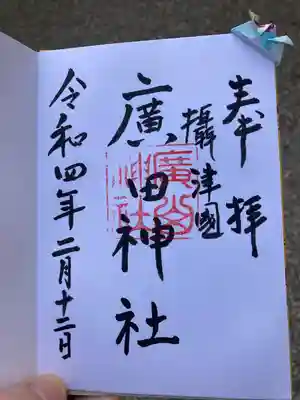 奉拝
攝津國
廣田神社
令和四年二月十二日